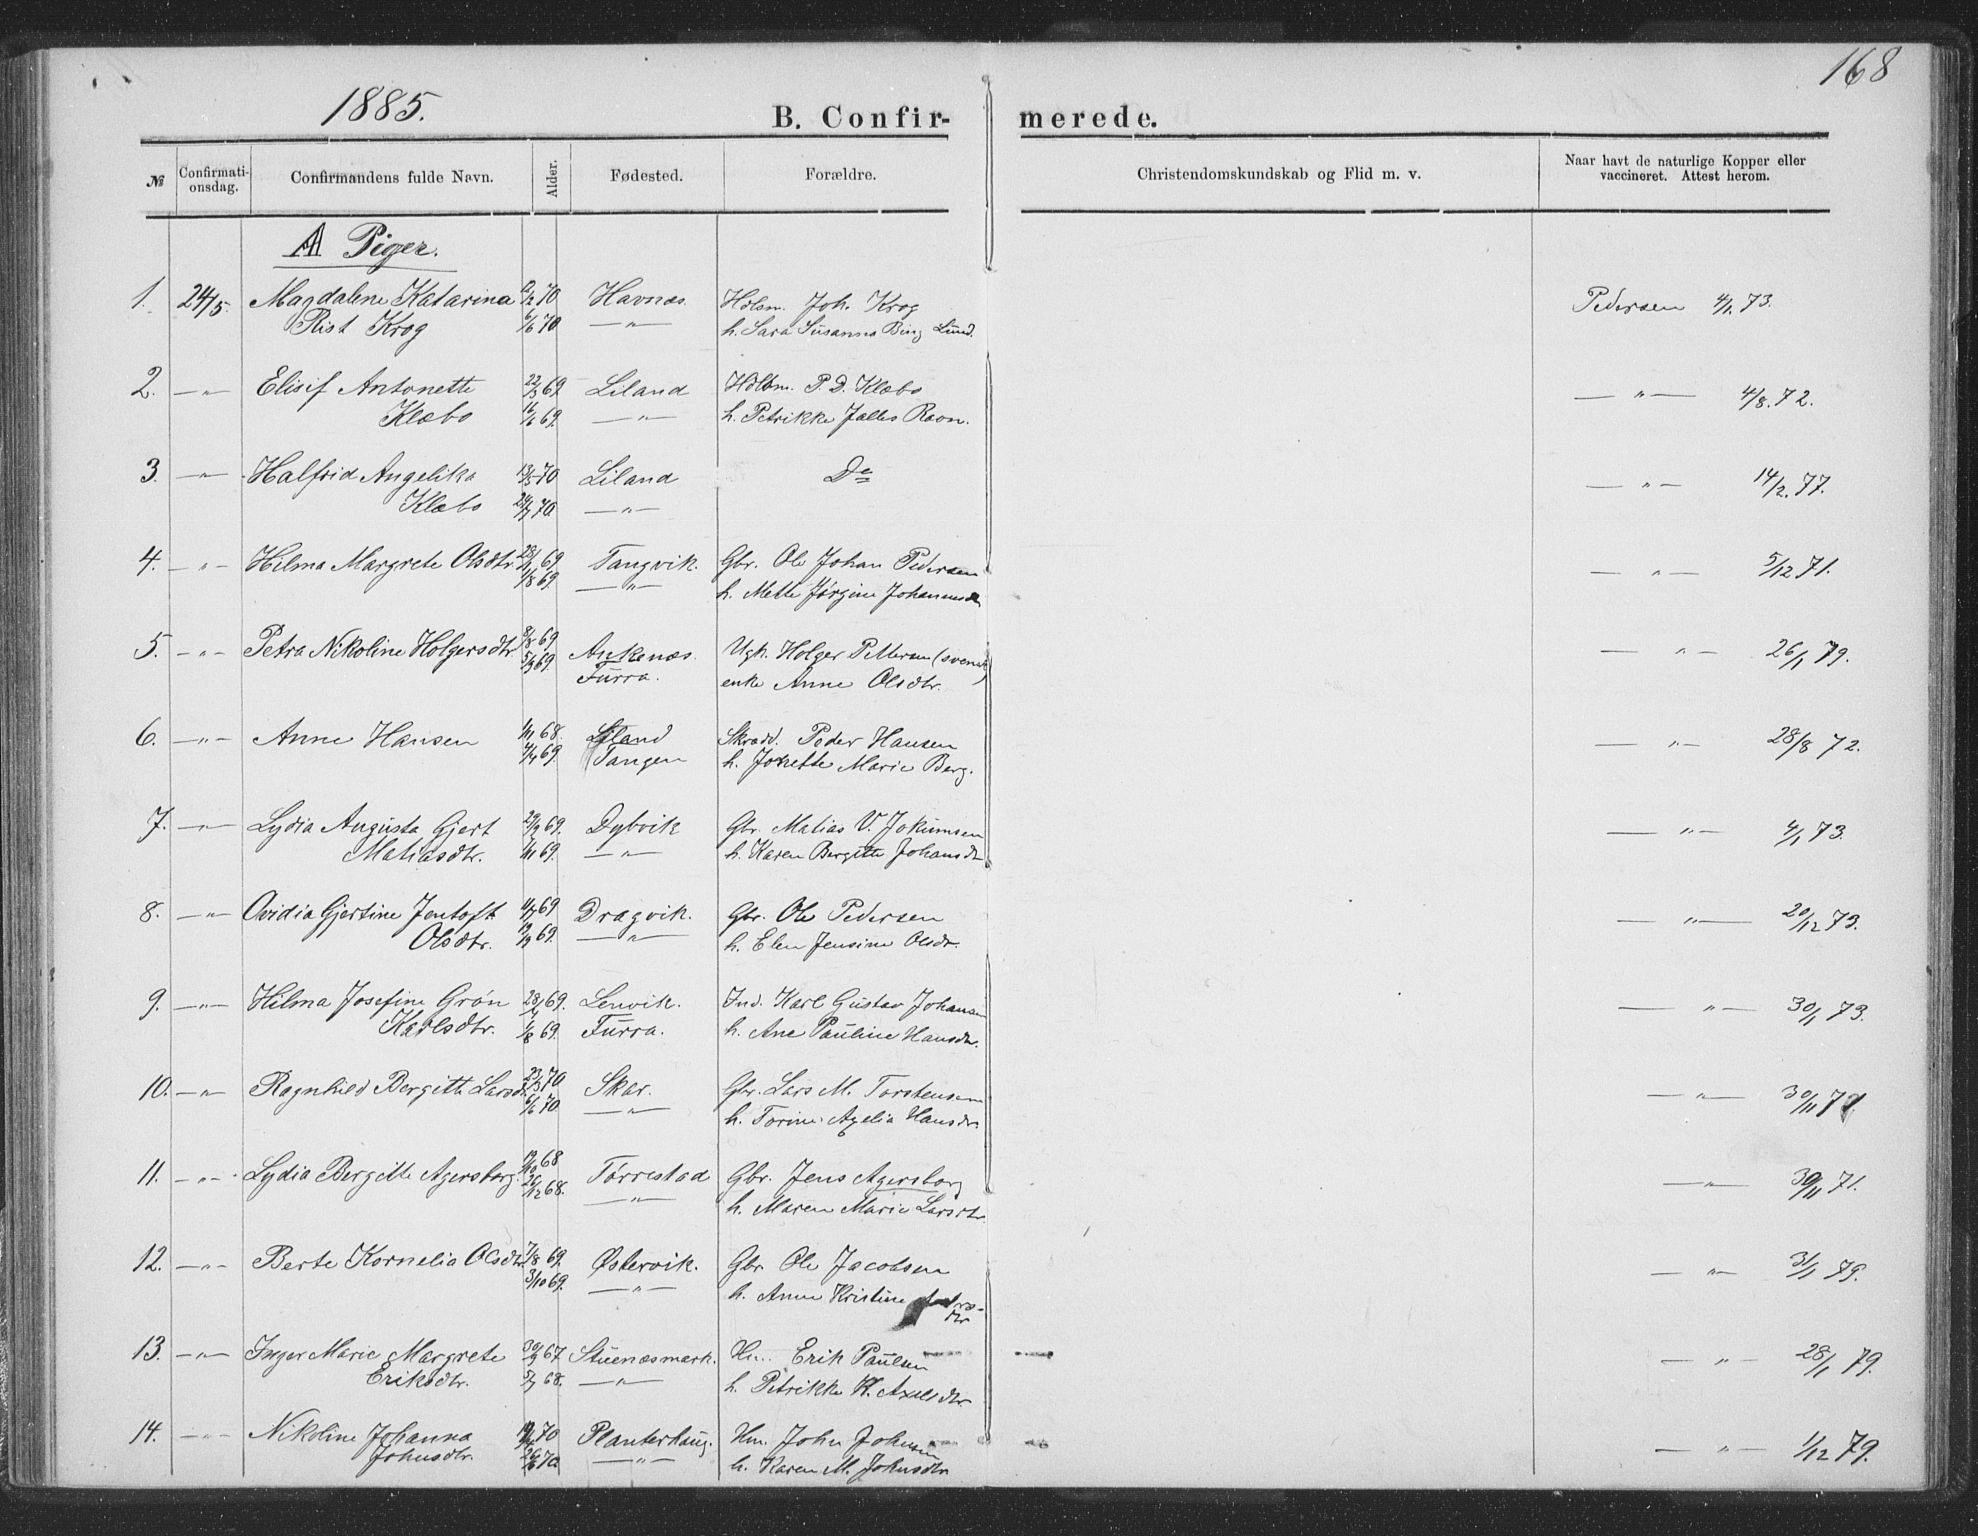 168
1885.
B. Confir- merede.
№ Confirmati-onsdag. Confirmandens fulde Navn. Alder. Fødested. Forældre. Christendomskundskab og Flid m. v. Naar havt de naturlige Kopper eller vaccineret. Attest herom.
A Piger.
1. 24/5. Magdalene Katarina 12/2 70 Havnæs. Hdlsm. Joh. Krog Pedersen 4/1 73.
Rist Krog 6/6 70. —"— h. Sara Susanna Bing Lund.
2. —"— Elisif Antonette 22/3 69. Liland Hdlsm. P. D. Klæbo —"— 4/8. 72.
Klæbo 16/6 69. —"— h. Petrikke Jalles Ravn.
3. —"— Halfrid Angelika 13/5 70 Liland Do —"— 14/2. 77.
Klæbo 24/7 70. —"—
4. —"— Hilma Margrete Olsdtr. 69. Tangvik. Gbr. Ole Johan Pedersen —"— 5/12 71.
1/8 69 —"— h. Mette Jørgine Johannesd
5. —"— Petra Nikoline Holgersdtr. 8/8 69 Ankenæs. Ugk. Holger Pettersen (svensk) —"— 26/1 79.
5/9 69. Furra. enke Anne Olsdtr.
6. —"— Anne Hansen 1/11 68. Liland Skrædd. Peder Hansen —"— 28/8 72.
4/4 69. Tangen h. Jonette Marie Berg.
7. —"— Lydia Augusta Gjert 69. Dybvik Gbr. Matias V. Jokumsen —"— 4/1 73.
Matiasdtr. 1/11 69. —"— h. Karen Bergitte Johansdtr
8. —"— Ovidia Gjertine Jentoft 4/7 69 Dragvik. Gbr. Ole Pedersen —"— 20/12 73.
Olsdtr. 19/9 69. —"— h. Elen Jensine Olsdtr.
9. —"— Hilma Josefine Grøn 69. Lenvik. Ind. Karl Gustav Johansen —"— 30/1 73.
Karlsdtr. 1/8 69. Furra. h. Ane Pauline Hansdtr.
10. —"— Ragnhild Bergitte Larsdtr. 23/3 70 Skar. Gbr. Lars M. Torstensen —"— 30/11
6/6 70 —"— h. Torine Axelia Hansdtr.
11. —"— Lydia Bergitte Agersborg. 19/10 68 Tørrestad Gbr. Jens Agersborg —"— 30/11 71.
26/12 68. —"— h. Maren Marie Larsdtr
12. —"— Berte Kornelia Olsdtr. 7/8 69. Østervik. Gbr. Ole Jacobsen —"— 31/1 79.
3/10 69. —"— h. Anne Kristine
13. —"— Inger Marie Margrete 30/9 67 Stuenæsmark. Hm. Erik Paulsen —"— 28/1 79.
Eriksdtr. 68. —"— h. Petrikke K. Axelsdtr
14. —"— Nikoline Johanna 70 Planterhaug. Hm. John Johnsen —"— 1/12 79.
Johnsdtr. 26/6 70. —"— h. Karen M. Johnsdtr